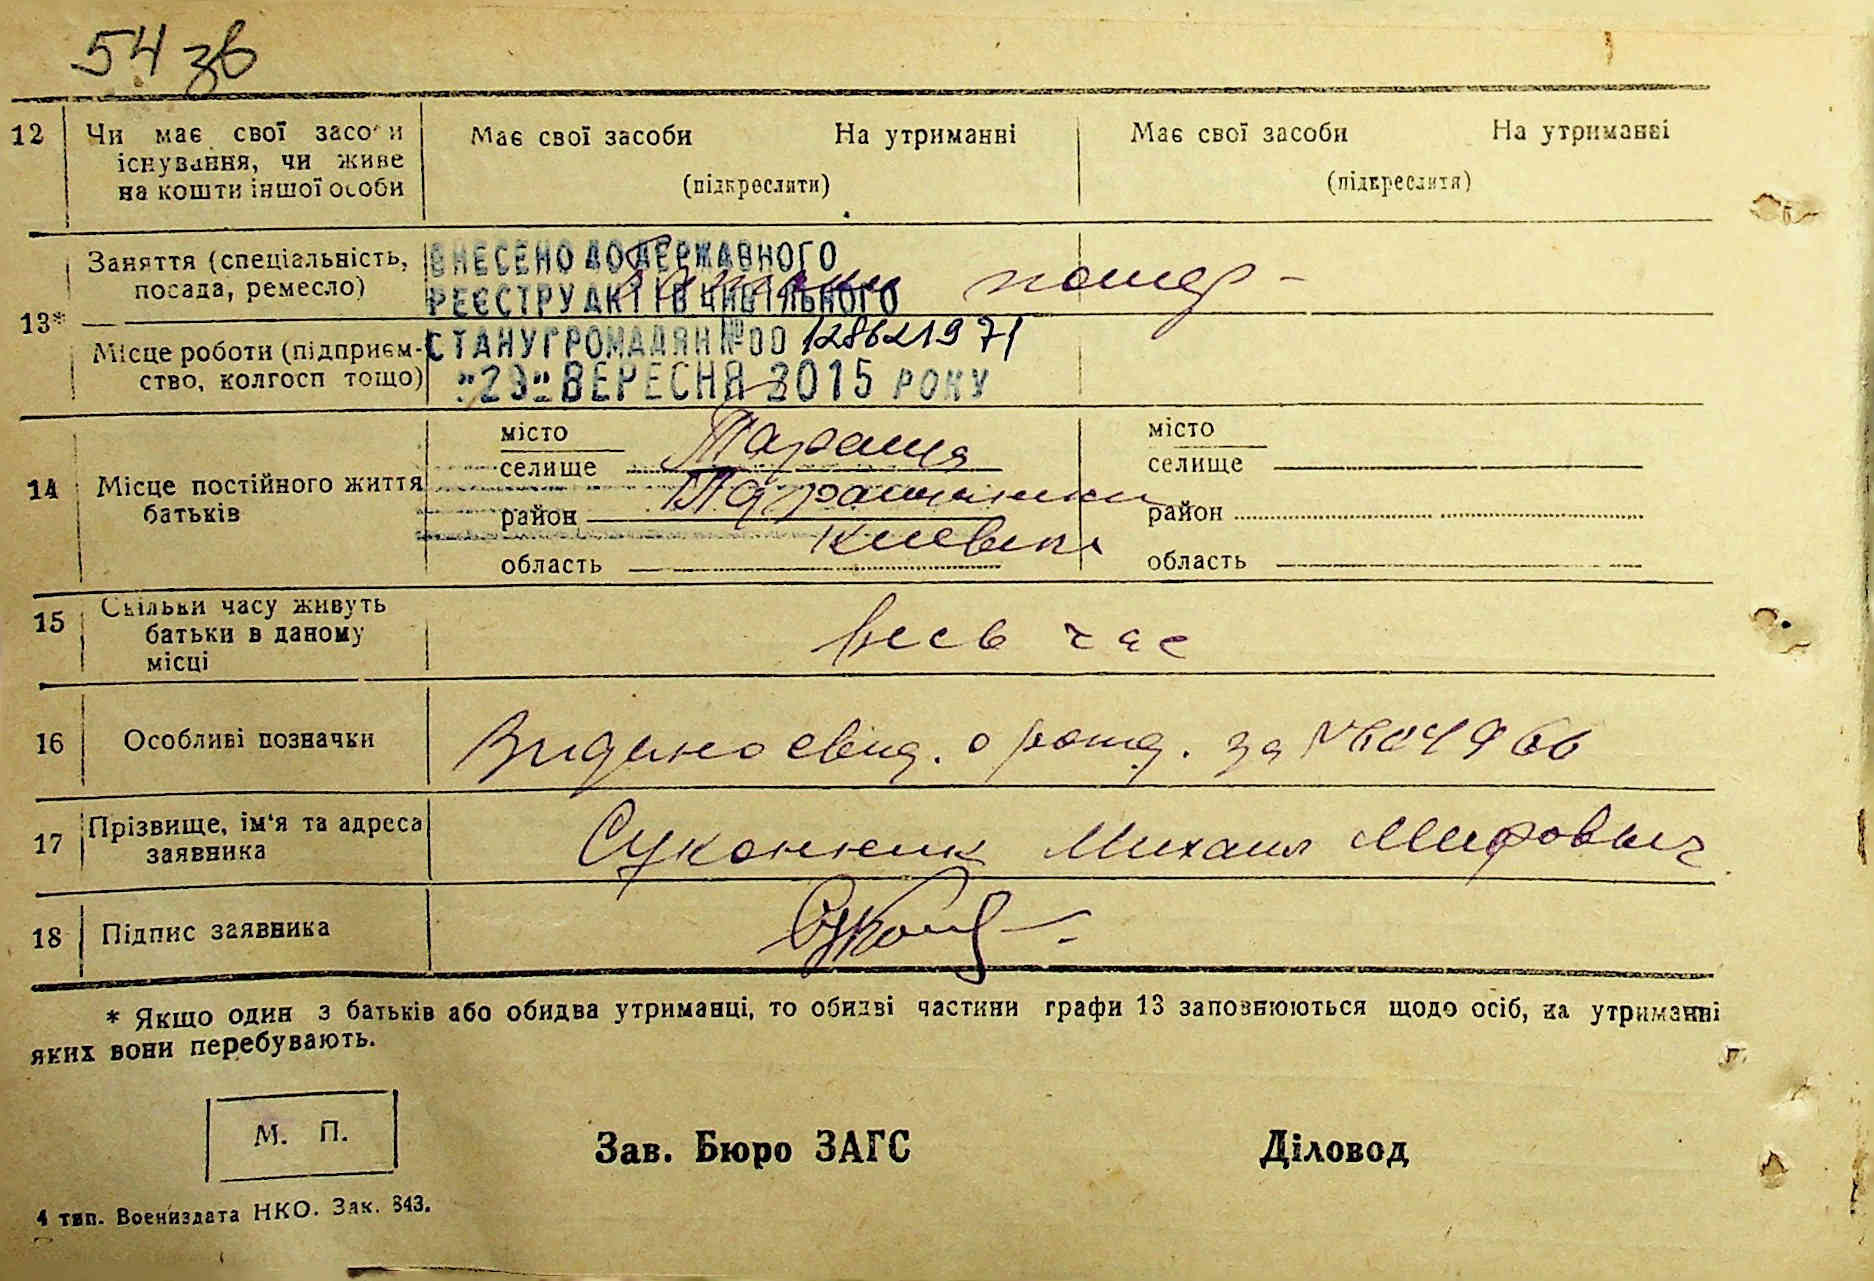 54 зв
12 Чи має свої засоби Має свої засоби На утриманні Має свої засоби На утриманні
існування, чи живе
на кошти іншої особи (підкреслити) (підкреслити)
Заняття (спеціальність, ВНЕСЕНО ДО ДЕРЖАВНОГО
посада, ремесло) РЕЄСТРУ АКТІВ ЦИВІЛЬНОГО
13*
Місце роботи (підприєм- СТАНУ ГРОМАДЯН №00 128621971
ство, колгосп тощо) "29" ВЕРЕСНЯ 2015 РОКУ
місто Тараща місто
селище селище
14 Місце постійного життя
батьків район район
Киевска
область область
15 Скільки часу живуть
батьки в даному весь час
місці
16 Особливі позначки
17 Прізвище, ім'я та адреса Михаил
заявника
18 Підпис заявника
* Якщо один з батьків або обидва утриманці, то обидві частини графи 13 заповнюються щодо осіб, на утриманні
яких вони перебувають.
М. П.
Зав. Бюро ЗАГС Діловод
4 тип. Воениздата НКО. Зак. 843.